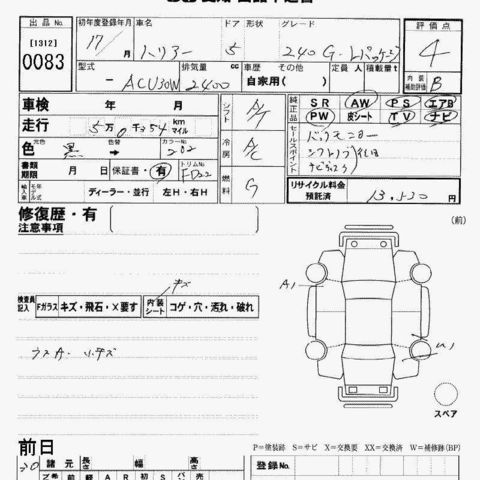 出品No. 初年度登録年月 車名 ドア 形状 グレード 評価点
[1312] 17/ ハリアー 5 240 G-Lパッケージ 4
0083 型式 排気量 cc 車歴 その他の場合 定員 人 積載量 t 内装補助評価 B
- ACU30W 2400 自家用( )
車検 年 月 シフト A/T 純正品 SR AW PS エアB
走行 5万0千354 km マイル PW 皮シート TV ナビ
色 元色 黒 → カラーNo 202 冷房 A/C セールスポイント
書類期限 月 日 保証書・有 トリムNo. FD22 シフトノブ
輸入車 モデル年式 ディーラー・並行 左H・右H 燃料 G リサイクル料金預託済 13,530
修復歴・有
注意事項
(前)
キズ
検査員記入 Fガラス キズ・飛石・X要す 内装シート コゲ・穴・汚れ・破れ
A1
ラスA. 小キズ
U1
スペア
(後)
P=塗装跡 S=サビ X=交換要 XX=交換済 W=補修跡(BP)
前日
30 諸元 長さ 幅 高さ 登録No.